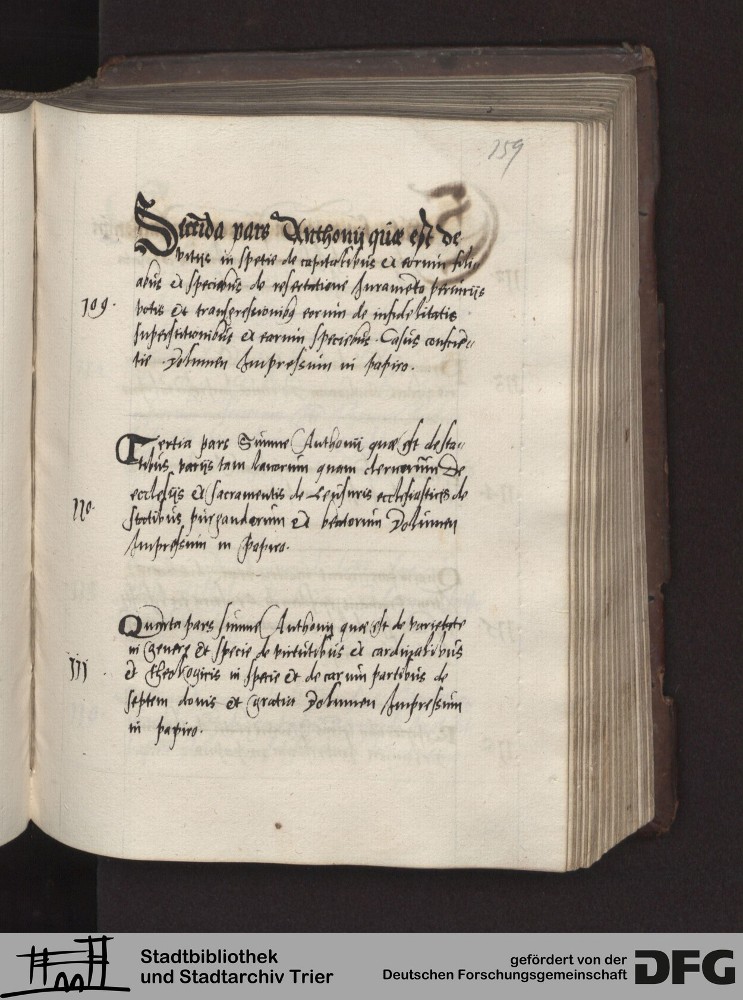 159
Secūda pars Anthonij quæ est de
vitijs in spetie de capitalibus et eorum filia
abus et speciebus de Juramento periurijs
109.
votis et transgressionibq eorum de infidelitatis
superstitionibus et earum speciebus. Casus conscien
tie Volumen Impressum in papiro.
Tertia pars Summe Anthonij quæ est de sta
tibus varijs tam laicorum quam clericorum De
ecclesijs et sacramentis de Censuris ecclesiasticis de
110.
statibus purgandorum et beatorum Volumen
Impressum in Papiro.
Quarta pars summe Anthonij quæ est de varietate
in genere et specie de virtutibus et cardinalibus
111.
et theologicis in specie et de earum partibus de
septem donis et gratia Volumen Impressum
in papiro.
Stadtbibliothek
und Stadtarchiv Trier
gefördert von der
Deutschen Forschungsgemeinschaft
DFG